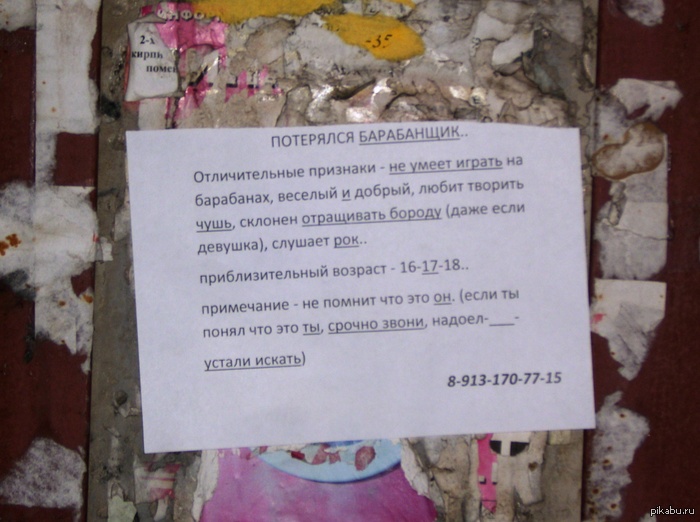 2-х
-35
ПОТЕРЯЛСЯ БАРАБАНЩИК..
Отличительные признаки - не умеет играть на
барабанах, веселый и добрый, любит творить
чушь, склонен отращивать бороду (даже если
девушка), слушает рок..
приблизительный возраст - 16-17-18..
примечание - не помнит что это он. (если ты
понял что это ты, срочно звони, надоел-___-
устали искать)
8-913-170-77-15
pikabu.ru